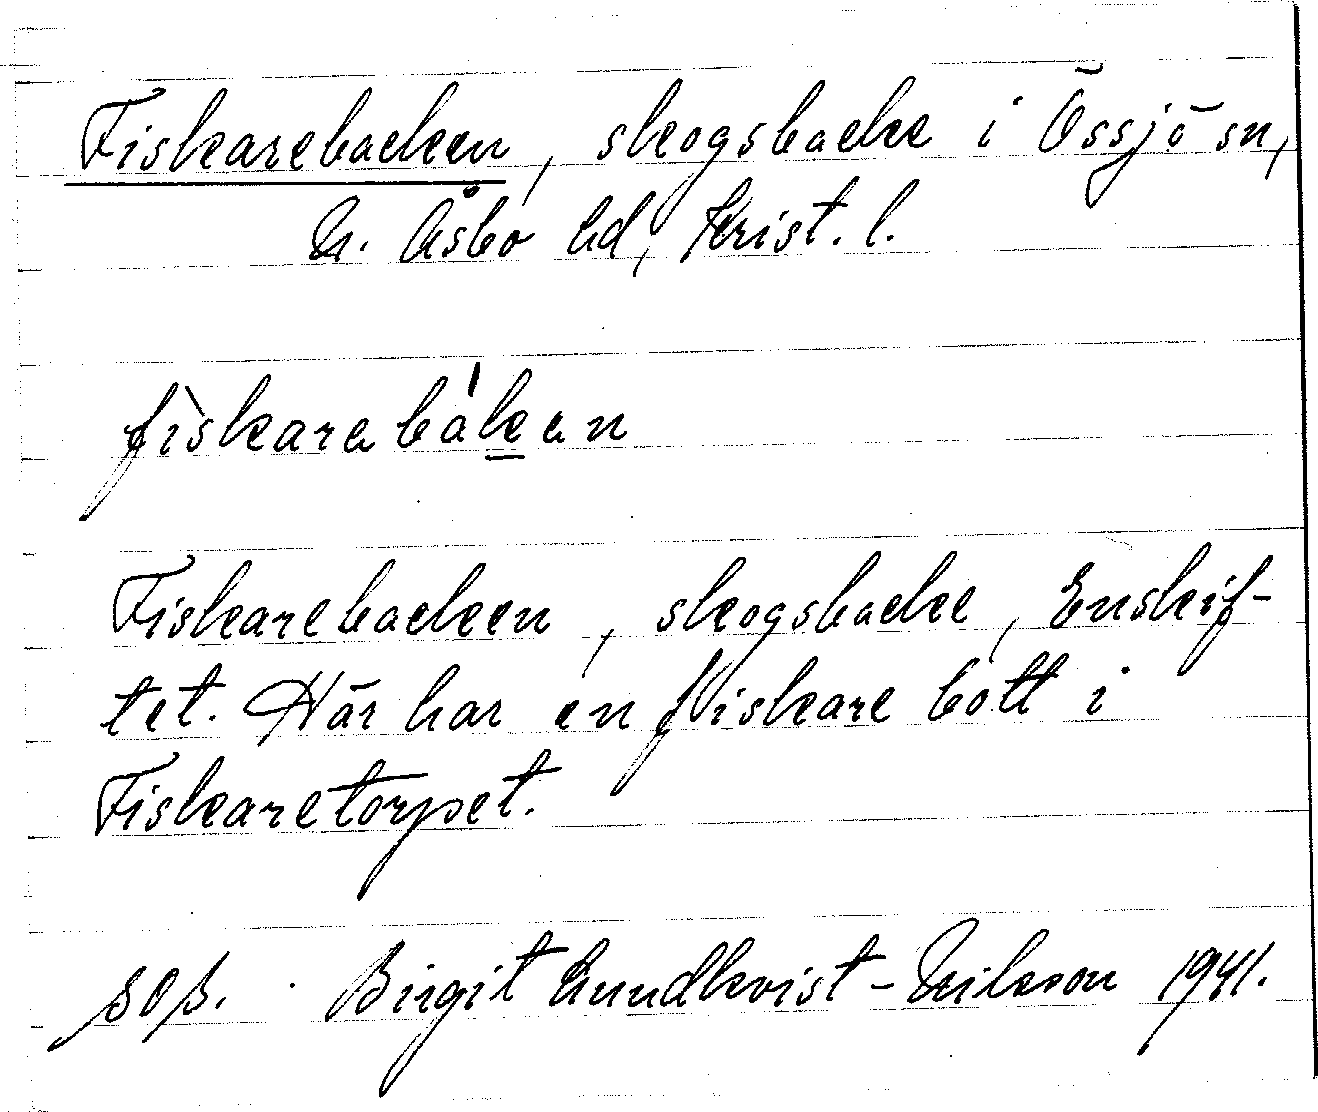 Fiskarebacken, skogsbacke i Össjö sn,
N. Åsbo hd, Krist. l.
fìskarabákan
Fiskarebacken, skogsbacke, Enskif-
tet. Här har en fiskare bott i
Fiskaretorpet.
Birgit Lundkvist-Nilsson 1941.